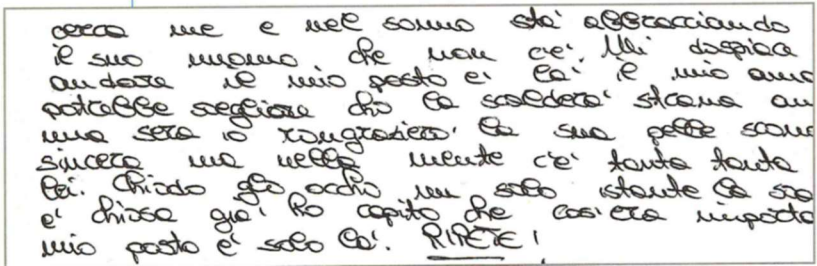 cerca me e nel sonno sta' abbracciando
il suo uomo che non c'e'. Mi dispiace
andare il mio posto e' la' il mio amo
potrebbe svegliare chi la scaldera' strana am
una sera io ringraziero' la sua pelle scono
sincera ma nella mente c'e' tanta tanta
lei. Chiudo gli occhi un solo istante la
e' chiusa gia' ho capito che cos'era importa
mio posto e' solo la'. RIPETE!